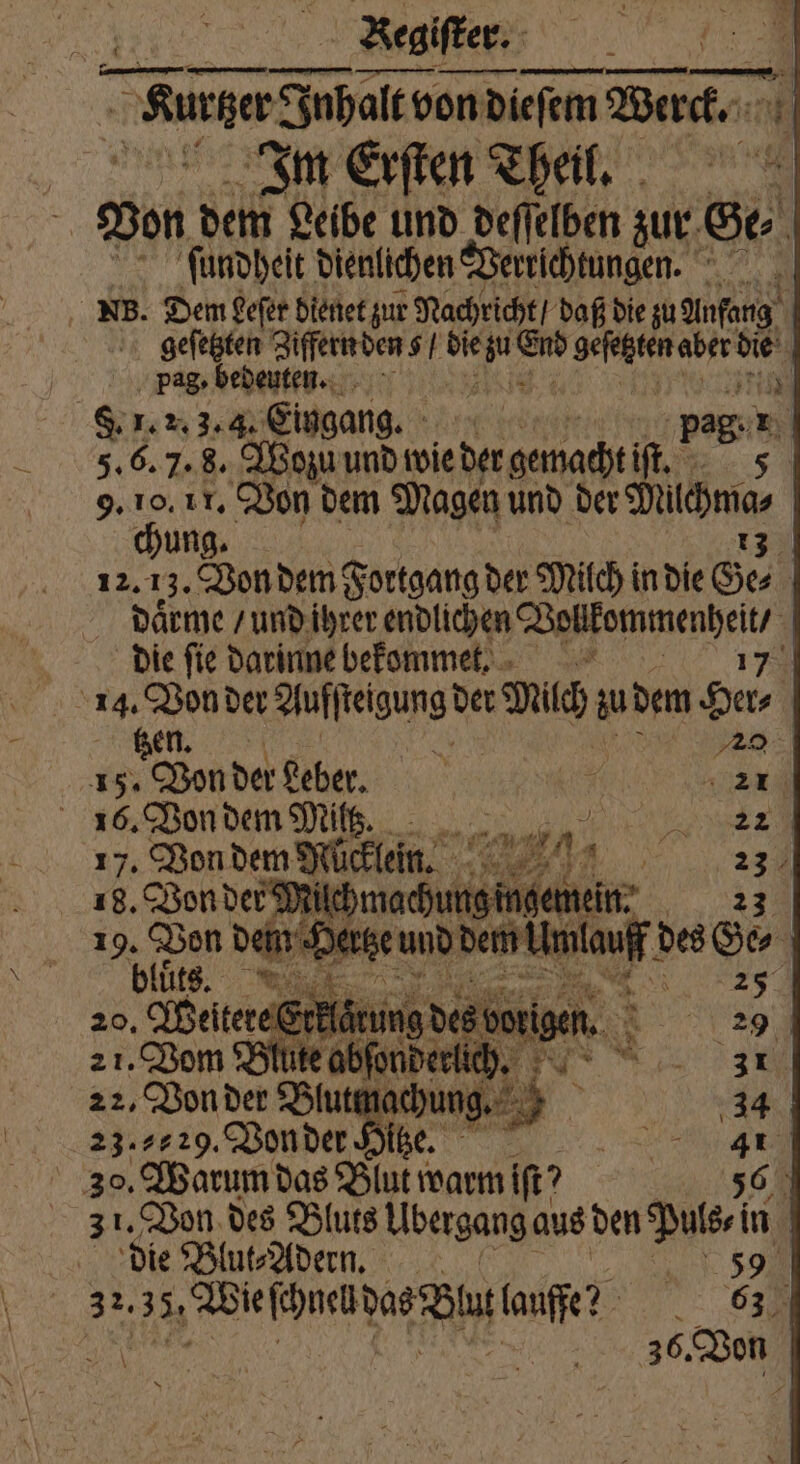 Regiſter.
Kurtzer Inhalt von dieſem Werck.
Im Erſten Theil.
Von dem Leibe und deſſelben zur Ge⸗
ſundheit dienlichen Verrichtungen.
NB. Dem Leſer dienet zur Nachricht / daß die zu Anfang
geſetzten Ziffern den § / die zu End geſetzten aber die
pag. bedeuten.
§. 1. 2. 3. 4. Eingang. pag. 1
5. 6. 7. 8. Wozu und wie der gemacht iſt. 5
9. 10. 11. Von dem Magen und der Milchma⸗
chung. 13
12. 13. Von dem Fortgang der Milch in die Ge⸗
daͤrme / und ihrer endlichen Vollkommenheit /
die ſie darinne bekommet. 17
14. Von der Aufſteigung der Milch zu dem Her⸗
tzen. 20
15. Von der Leber. 21
16. Von dem Miltz. 22
17. Von dem Ruͤcklein. 23
18. Von der Milchmachung ingemein. 23
19. Von dem Hertze und dem Umlauff des Ge⸗
bluͤts. 25
20. Weitere Erklaͤrung des vorigen. 29
21. Vom Blute abſonderlich. 31
22. Von der Blutmachung. 34
23. ⸗⸗ 29. Von der Hitze. 41
30. Warum das Blut warm iſt? 56
31. Von des Bluts Ubergang aus den Puls⸗ in
die Blut⸗Adern. 59
32. 35. Wie ſchnell das Blut lauffe? 63
36. Von